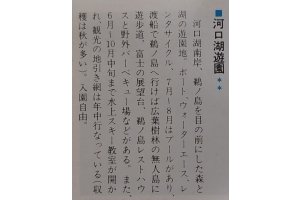 ■河口湖遊園**
河口湖南岸、鵜ノ島を目の前にした森と
湖の遊園地。ボート、ウォーターエース、レ
ンタサイクル、7月～8月はプールがあり、
渡船で鵜ノ島へ行けば広葉樹林の無人島に
遊歩道、富士の展望台、鵜ノ島レストハウ
スと野外バーベキュー場などがある。また、
6月～10月中旬まで水上スキー教室が開か
れ、観光の地引き網は年中行なっている（収
穫は秋が多い）。入園自由。